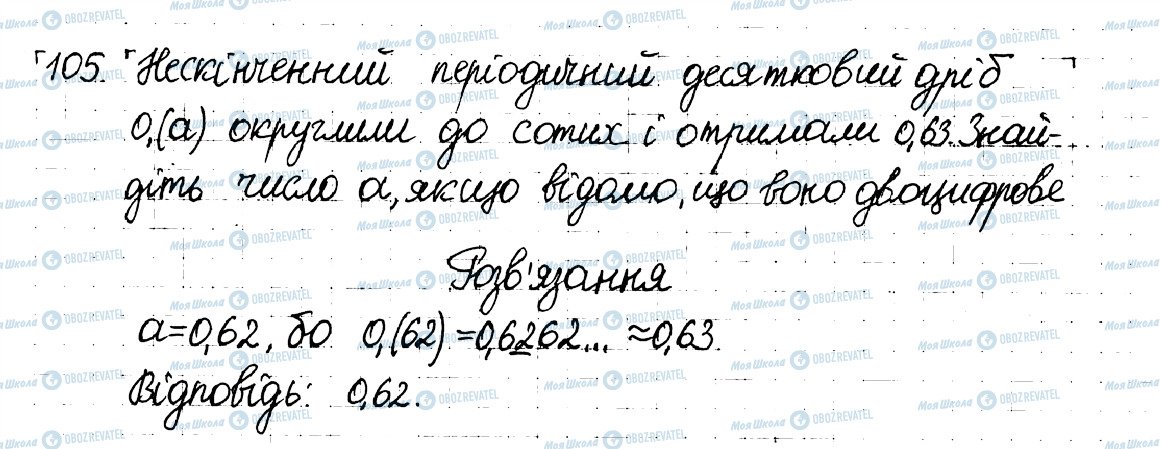 105. Нескінченний періодичний десятковий дріб
0,(а) округлили до сотих і отримали 0,63. Знай-
діть число а, якщо відомо, що воно двоцифрове
Розв'язання
а=0,62, бо 0,(62)=0,6262... ≈0,63.
Відповідь: 0,62.